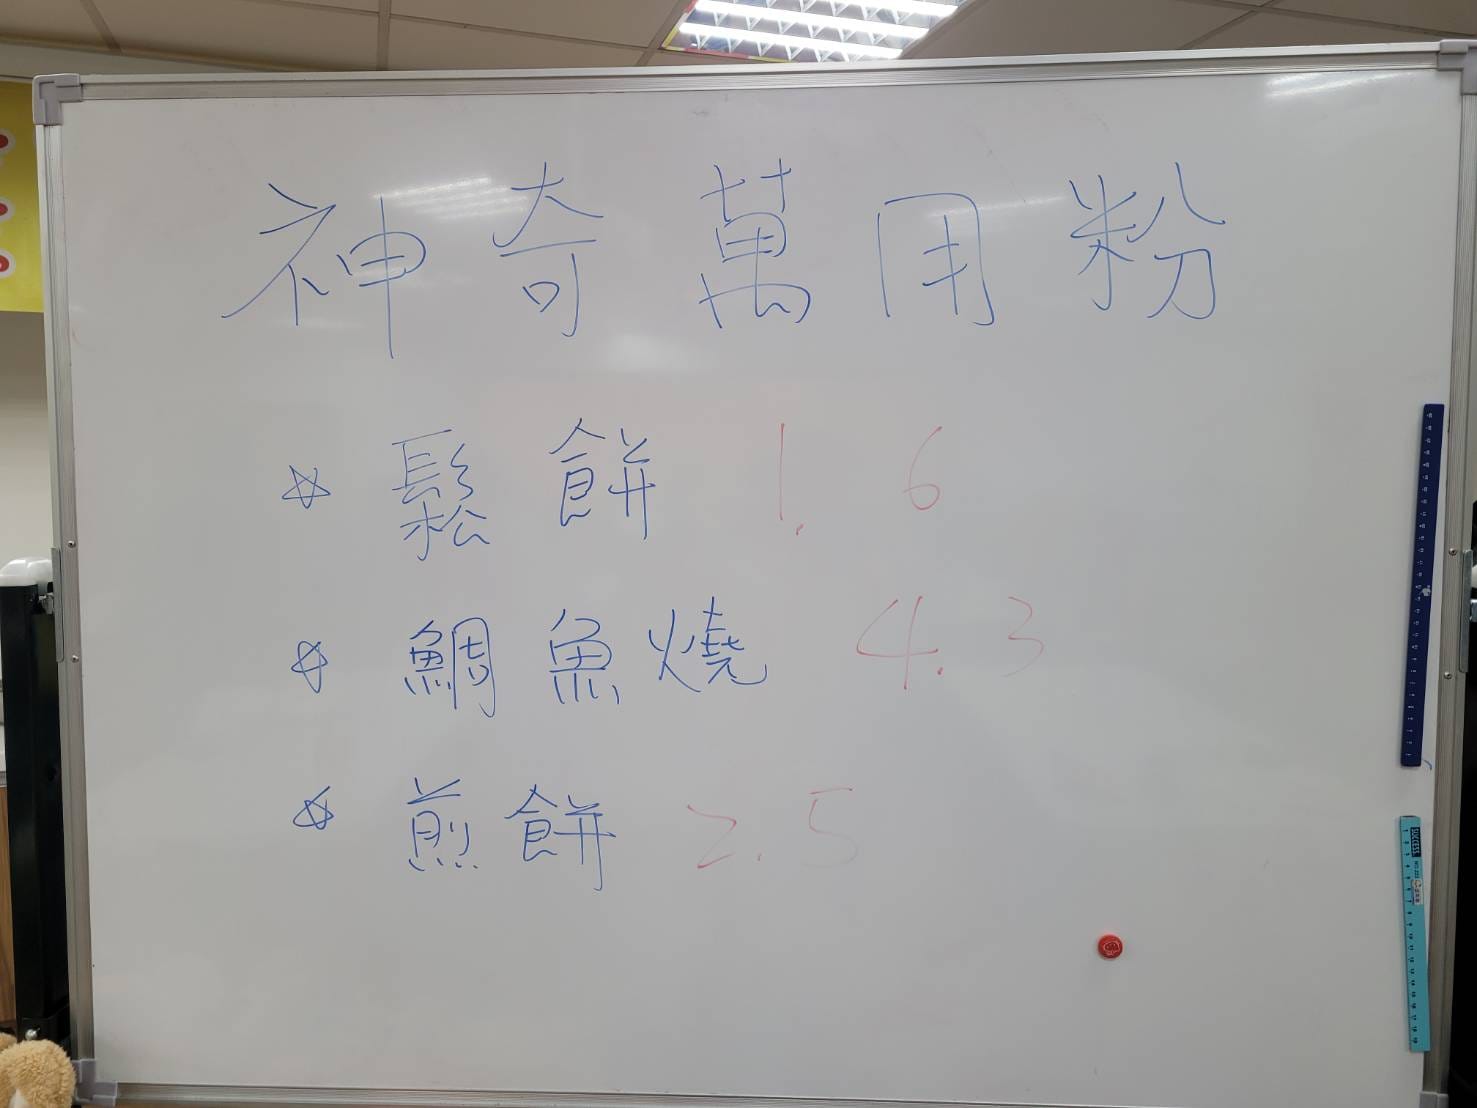 神奇萬用粉
☆ 鬆餅 1. 6
☆ 鯛魚燒 4. 3
☆ 煎餅 2. 5
SUCCESS